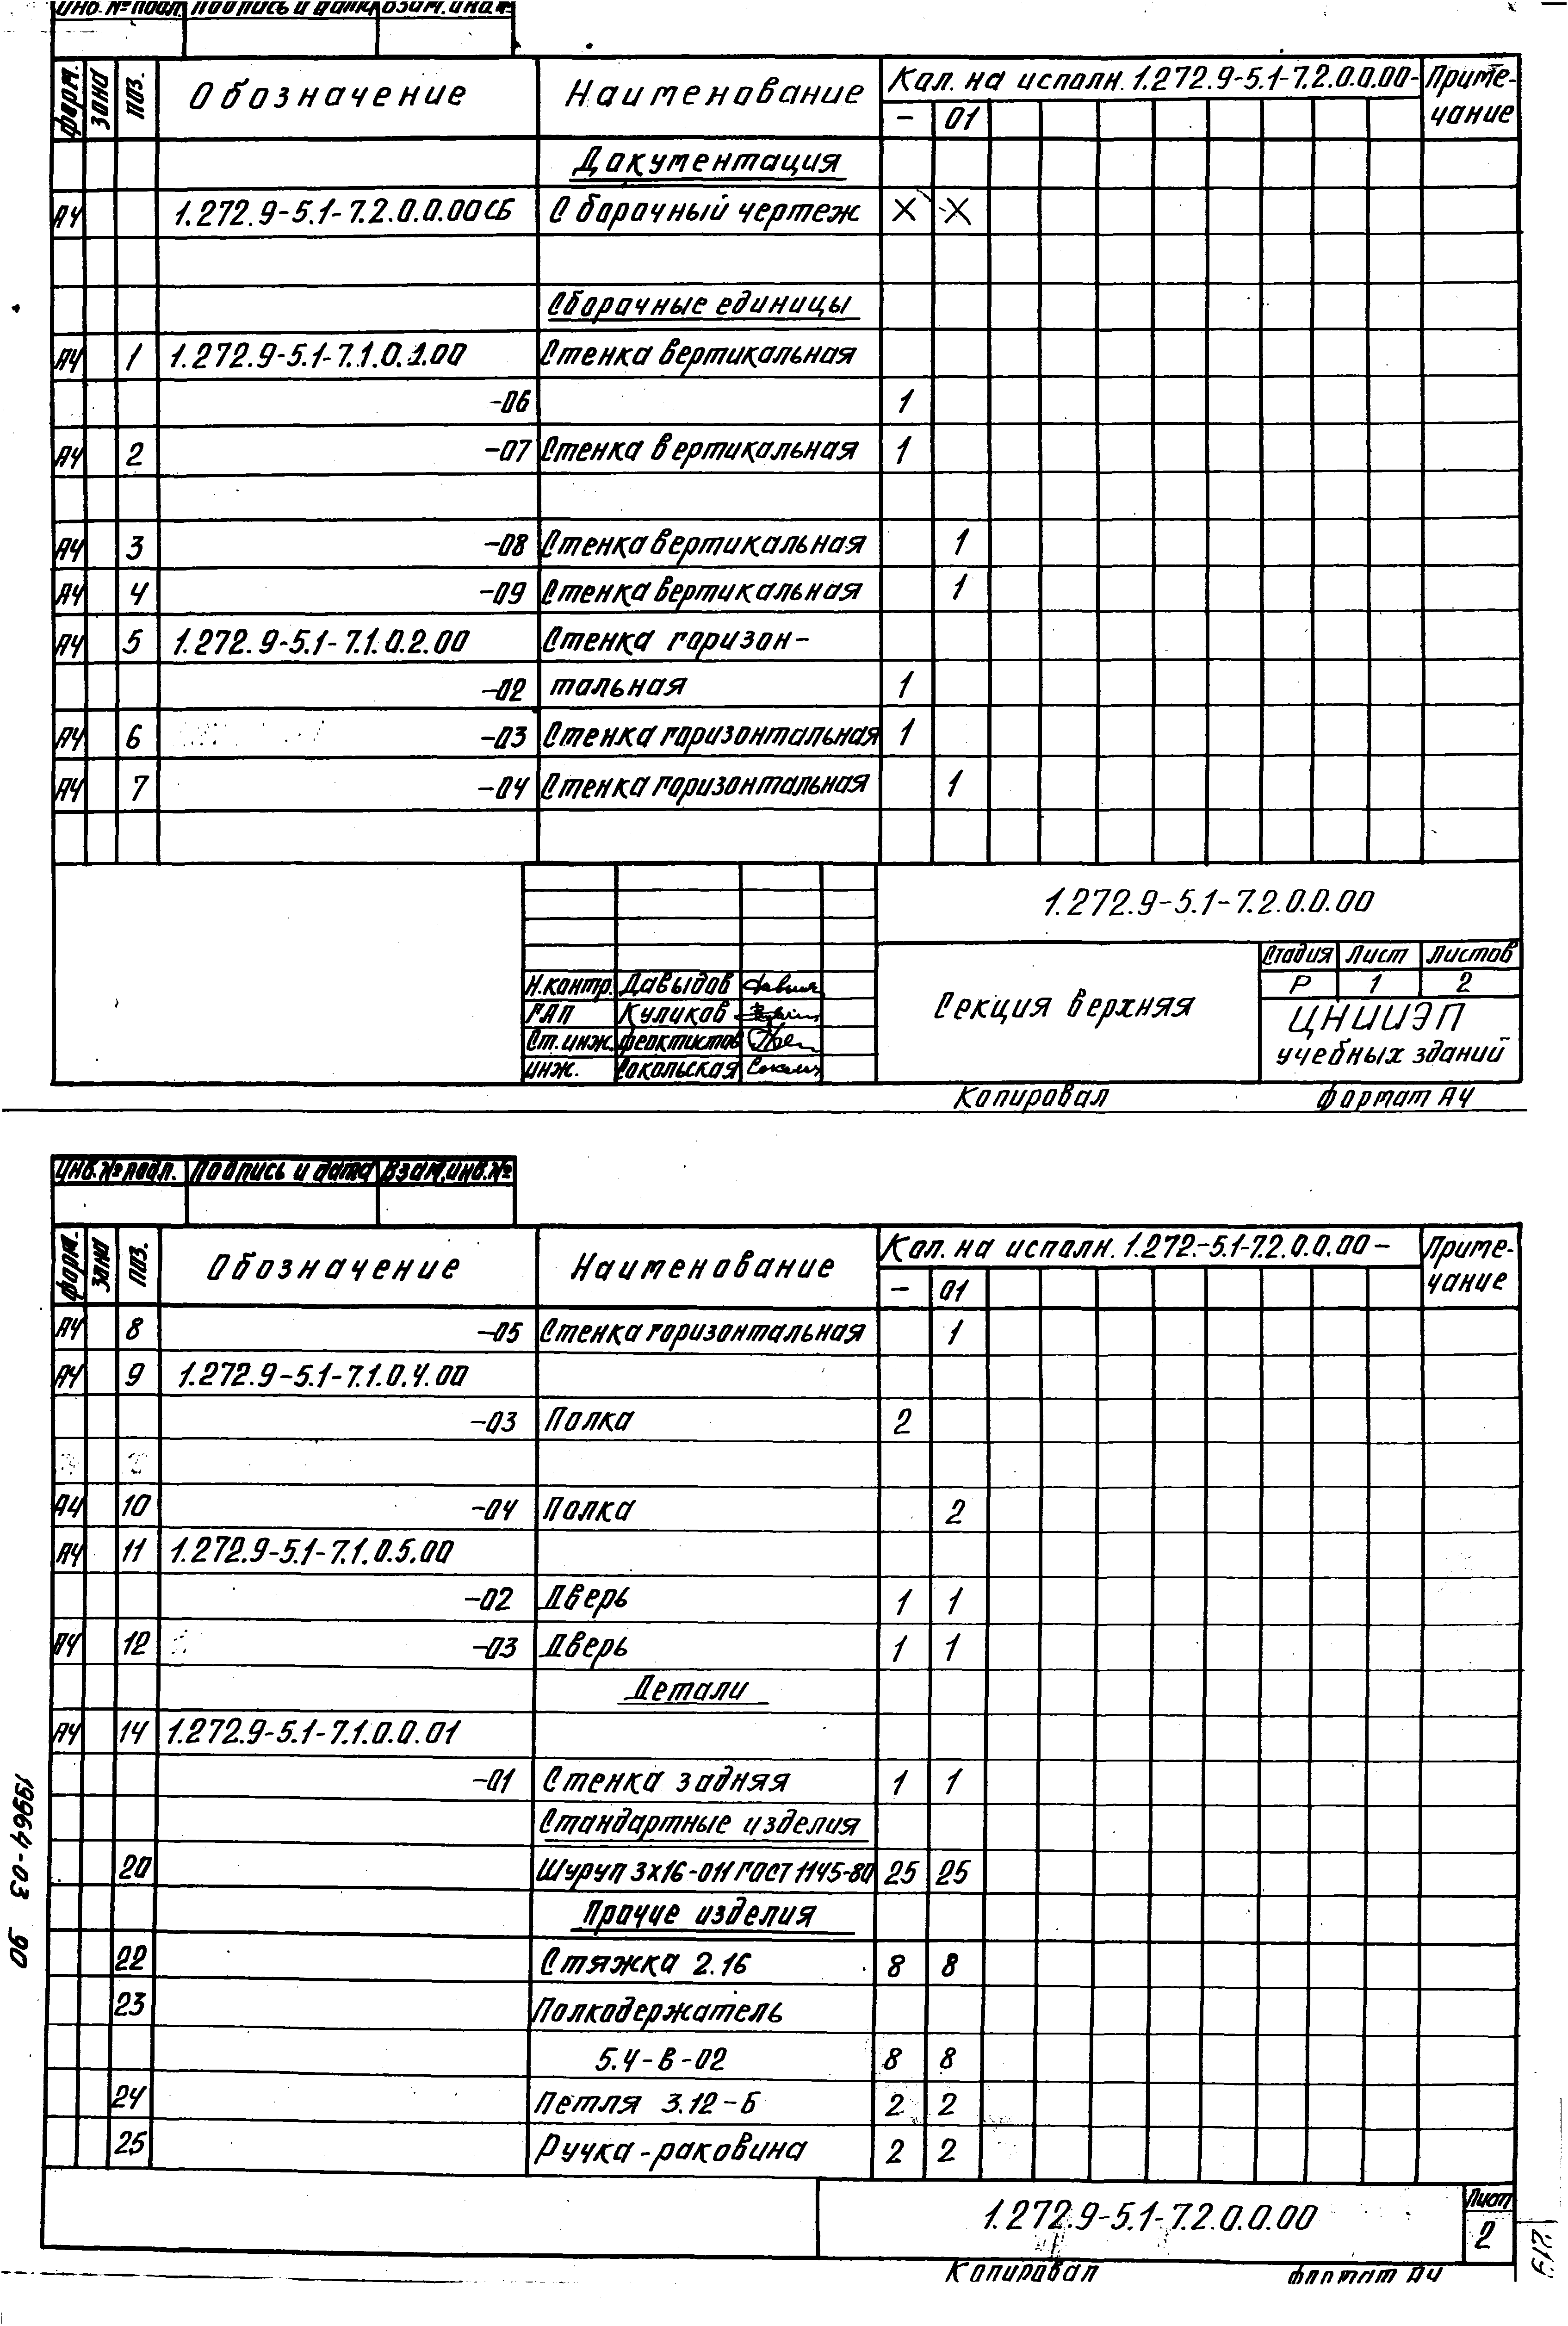 Инв. № подл. Подпись и дата Взам. инв. №
Форм. Зона Поз. Обозначение Наименование Кол. на исполн. 1.272.9-5.1-7.2.0.0.00- Приме-
- 01 чание
Документация
А4 1.272.9-5.1-7.2.0.0.00СБ Сборочный чертеж X X
Сборочные единицы
А4 1 1.272.9-5.1-7.1.0.1.00 Стенка вертикальная
-06 1
А4 2 -07 Стенка вертикальная 1
А4 3 -08 Стенка вертикальная 1
А4 4 -09 Стенка вертикальная 1
А4 5 1.272.9-5.1-7.1.0.2.00 Стенка горизон-
-02 тальная 1
А4 6 -03 Стенка горизонтальная 1
А4 7 -04 Стенка горизонтальная 1
1.272.9-5.1-7.2.0.0.00
Стадия Лист Листов
Н.контр. Давыдов Р 1 2
ГАП Куликов Секция верхняя ЦНИИЭП
Ст. инж. Феоктистов учебных зданий
Инж. Сокольская
Копировал Формат А4
Инв. № подл. Подпись и дата Взам. инв. №
Форм. Зона Поз. Обозначение Наименование Кол. на исполн. 1.272.-5.1-7.2.0.0.00- Приме-
- 01 чание
А4 8 -05 Стенка горизонтальная 1
А4 9 1.272.9-5.1-7.1.0.4.00
-03 Полка 2
А4 10 -04 Полка 2
А4 11 1.272.9-5.1-7.1.0.5.00
-02 Дверь 1 1
А4 12 -03 Дверь 1 1
Детали
А4 14 1.272.9-5.1-7.1.0.0.01
-01 Стенка задняя 1 1
Стандартные изделия
20 Шуруп 3х16-011 ГОСТ 1145-80 25 25
Прочие изделия
22 Стяжка 2.16 8 8
23 Полкодержатель
5.4-В-02 8 8
24 Петля 3.12-Б 2 2
25 Ручка-раковина 2 2
1.272.9-5.1-7.2.0.0.00 Лист
2
Копировал Формат А4
19964-03 90